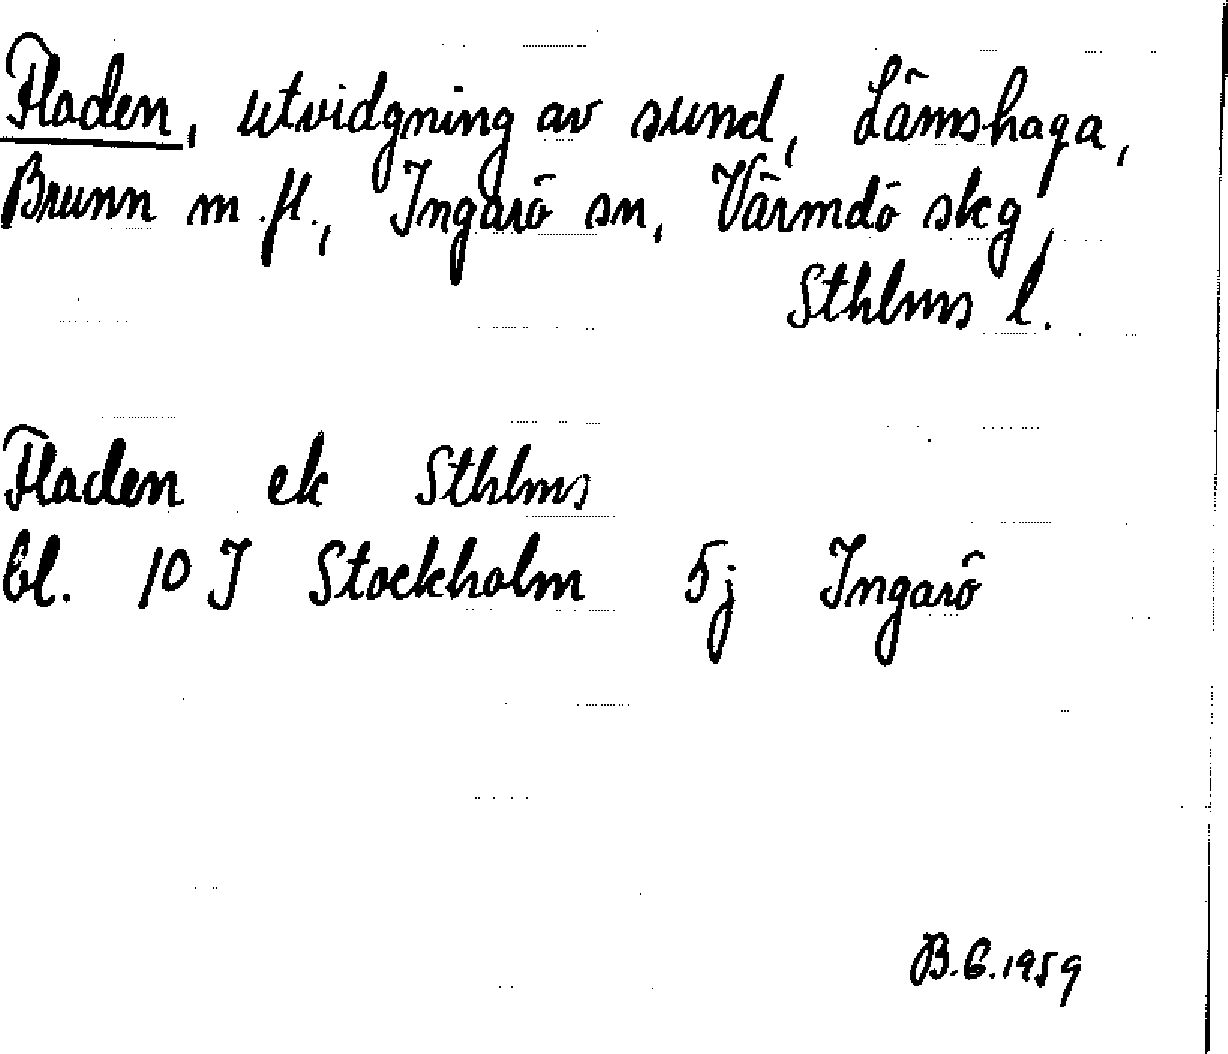 Fladen, utvidgning av sund, Lämshaga,
Brunn m. fl., Ingarö sn, Värmdö skg,
Sthlms l.
Fladen ek Sthlms
bl. 10 J Stockholm 5j Ingarö
B.G.1959